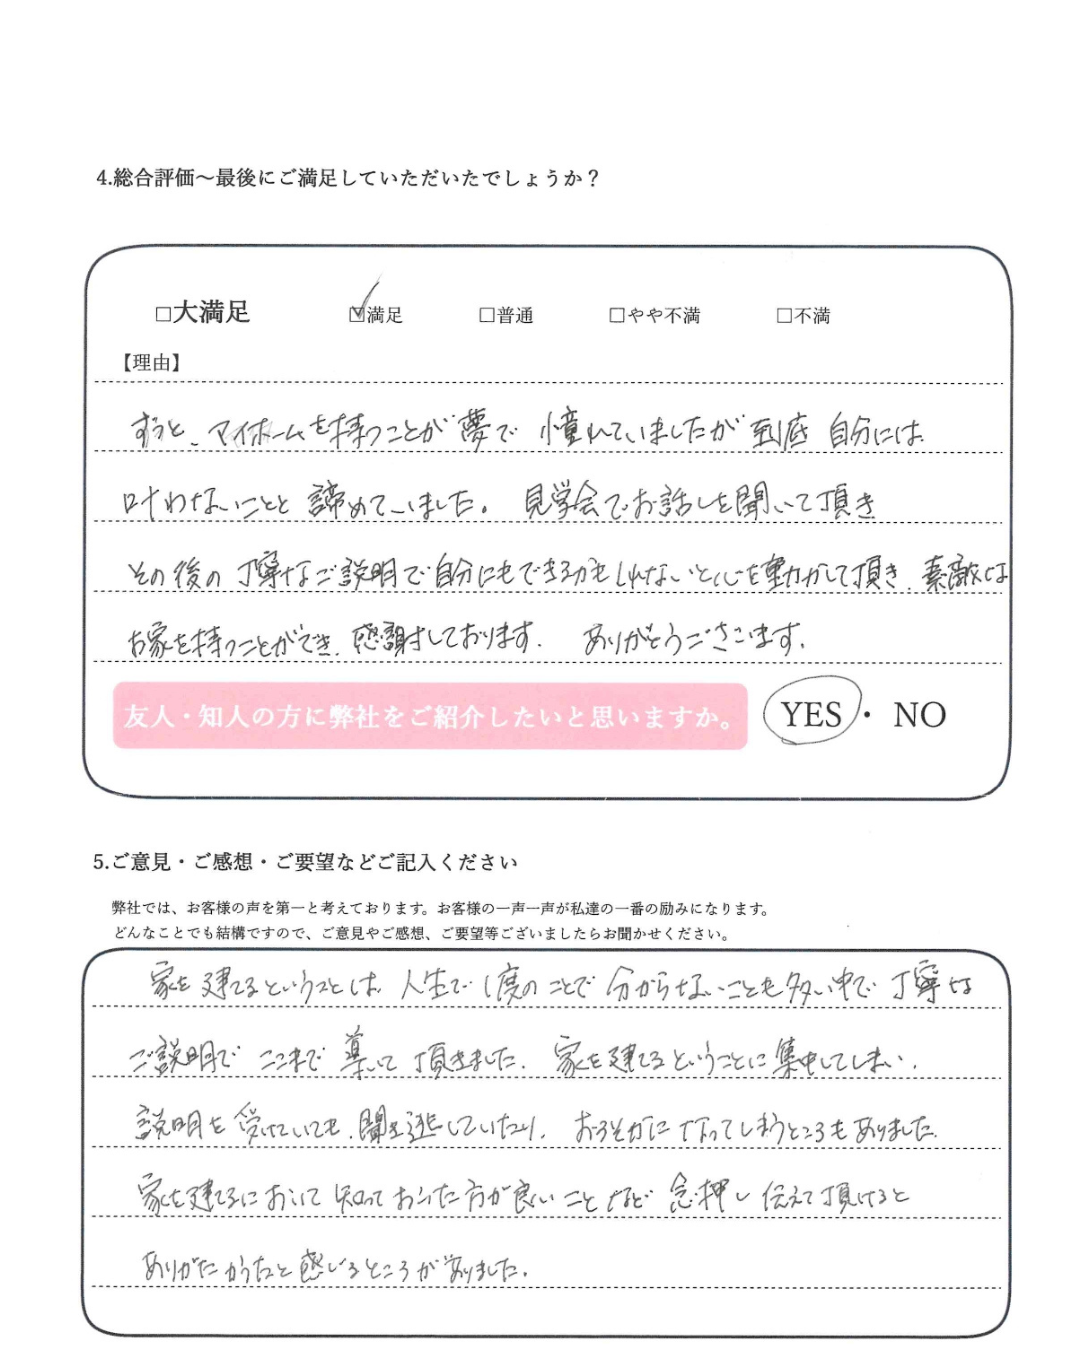 4.総合評価～最後にご満足していただいたでしょうか？
□大満足 ☑満足 □普通 □やや不満 □不満
【理由】
ずっと、マイホームを持つことが夢で 憧れていましたが 到底 自分には
叶わないことと 諦めていました。 見学会でお話しを聞いて頂き
その後の 丁寧なご説明で自分にもできるかもしれないと心を動かして頂き、素敵な
お家を持つことができ、感謝しております. ありがとうございます.
友人・知人の方に弊社をご紹介したいと思いますか。 YES・NO
5.ご意見・ご感想・ご要望などご記入ください
弊社では、お客様の声を第一と考えております。お客様の一声一声が私達の一番の励みになります。
どんなことでも結構ですので、ご意見やご感想、ご要望等ございましたらお聞かせください。
家を建てるということは、人生で1度のことで 分からないことも多い中で 丁寧な
ご説明で ここまで 導いて 頂きました. 家を建てるということに集中してしまい,
説明を受けていても、聞き逃していたり, おろそかになってしまうところもありました.
家を建てるにおいて 知っておいた方が良いこと など 念押し 伝えて頂けると
ありがたかったと感じるところがありました.